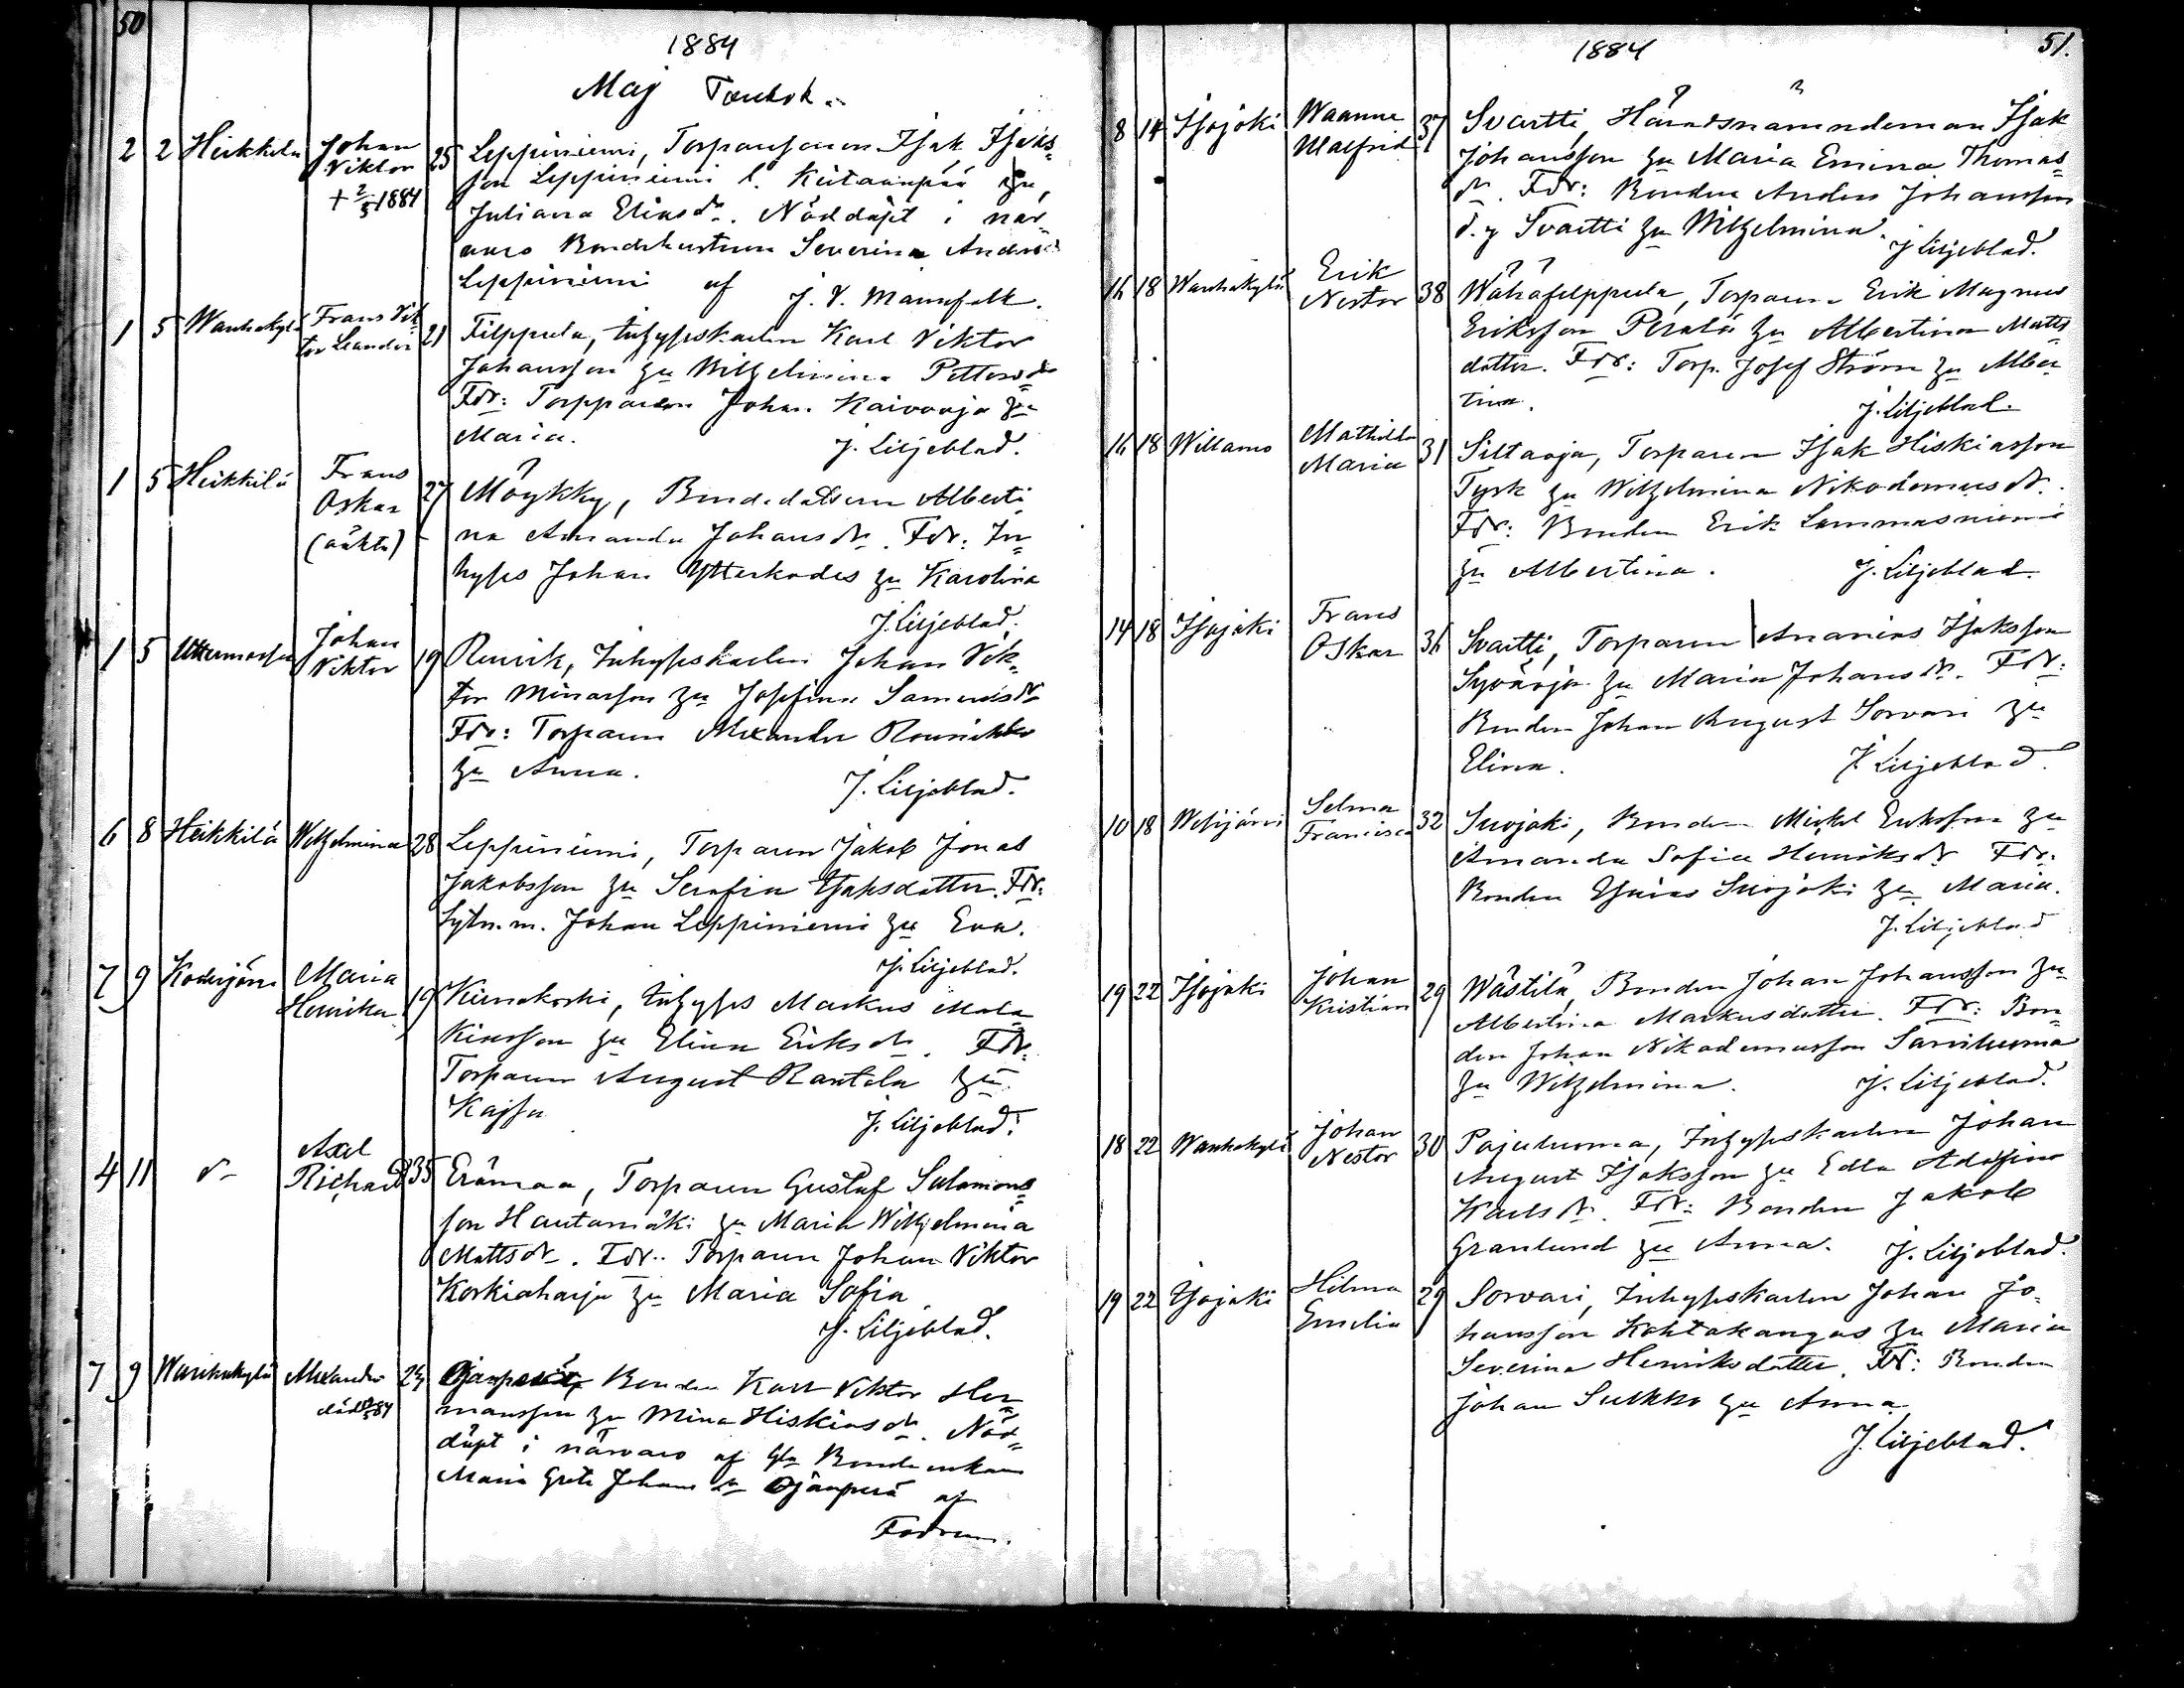 50
1884
Maj
2 2 Heikkilä Johan Viktor + 2/5 1884 25 Leppiniemi, Torparsonen Isak Isaks=
son Leppiniemi l. Kiitaanpää zu,
Juliana Eliasdr. Nöddöpt i när=
varo Bondehustrun Severina Andersdr
Leppiniemi af J. V. Mannfolk.
1 5 Wanhakylä Frans Vik=
tor Leander 21 Filppula, Inhyseskarlen Karl Viktor
Johansson zu Wilhelmina Pettersdr
Fdr: Torpparen Johan Kaivooja zu
Maria. J. Liljeblad.
1 5 Heikkilä Frans Oskar (oäkta) 27 Möykky, Bondedottern Alberti=
na Amanda Johansdr. Fdr: In=
hyses Johan Ytterkodes zu Karolina
J. Liljeblad.
1 5 Uttermossa Johan Viktor 19 Johan Vik=
tor zu Josefina Samuelsdr
Fdr: Torparen Alexander
zu Anna. J. Liljeblad.
6 8 Heikkilä Wilhelmina 28 Leppiniemi, Torparen Jakob Jonas
Jakobsson zu Serafia Isaksdotter. Fdr:
Sytn.m. Johan Leppiniemi zu Eva.
J. Liljeblad.
7 9 Kodesjärvi Maria Henrika 19 Inhyses Markus Mala=
kiasson zu Elina Eriksdr. Fdr:
Torparen August Rantala zu
Kajsa J. Liljeblad.
4 11 dr Axel Richard 35 Erämaa, Torparen Gustaf Salomons=
son Hautamäki zu Maria Wilhelmina
Mattsdr. Fdr: Torparen Johan Viktor
Korkiaharju zu Maria Sofia
J. Liljeblad.
7 9 Wanhakylä Alexander 23 Ojanperä, Bonden Karl Viktor Her=
mansson zu Mina Hiskiasdr. Nöd=
döpt i närvaro af Maria Greta Johansdr Ojanperä af
Fadren.
51.
1884
8 14 Isojoki Waanne Malfrid 37 Svartti, Häradsnämndeman Isak
Johansson zu Maria Emina Thomas=
dr. Fdr: Bonden Anders Johansson
d.y Svartti zu Wilhelmina. J Liljeblad.
16 18 Wanhakylä Erik Nestor 38 Wähäfilppula, Torparen Erik Magnus
Eriksson Perälä zu Albertina Matts=
dotter. Fdr: Torp. Josef Ström zu Alber=
tina. J. Liljeblad.
16 18 Willamo Mathilda Maria 31 Siltaoja, Torparen Isak Hiskiasson
Tysk zu Wilhelmina Nikodemusdr.
Fdr: Bonden Erik Lammasniemi
zu Albertina. J. Liljeblad.
14 18 Isojoki Frans Oskar 36 Svartti, Torparen Ananias Isaksson
Syväoja zu Maria Johansdr. Fdr:
Bonden Johan August Sorvari zu
Elina. J. Liljeblad.
10 18 Wesijärvi Selma Francisca 32 Suojoki, Bonden Mickel Eriksson zu
Amanda Sofia Henriksdr Fdr:
Bonden Esaias Suojoki zu Maria.
J. Liljeblad
19 22 Isojoki Johan Kristian 29 Wästilä, Bonden Johan Johansson zu
Albertina Markusdotter. Fdr: Bon=
den Johan Nikodemusson Sarviluoma
zu Wilhelmina. J. Liljeblad.
18 22 Wanhakylä Johan Nestor 30 Pajuluoma, Inhyseskarlen Johan
August Isaksson zu Edla Adolfina
Karlsdr. Fdr: Bonden Jakob
Granlund zu Anna. J. Liljeblad.
19 22 Isojoki Hilma Emelia 29 Sorvari, Inhyseskarlen Johan Jo=
hansson Kohtakangas zu Maria
Severina Henriksdotter. Fdr: Bonden
Johan Sulkko zu Anna
J. Liljeblad.